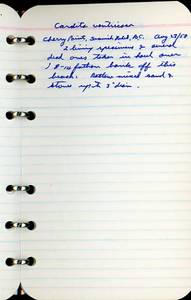 Cardita ventricosa
Cherry Point, Saanich Pen., B.C. Aug 23/58
2 living specimens & several
dead ones taken in haul over
8-10 fathom bank off this
beach. Bottom mixed sand &
stones up to 3" diam.